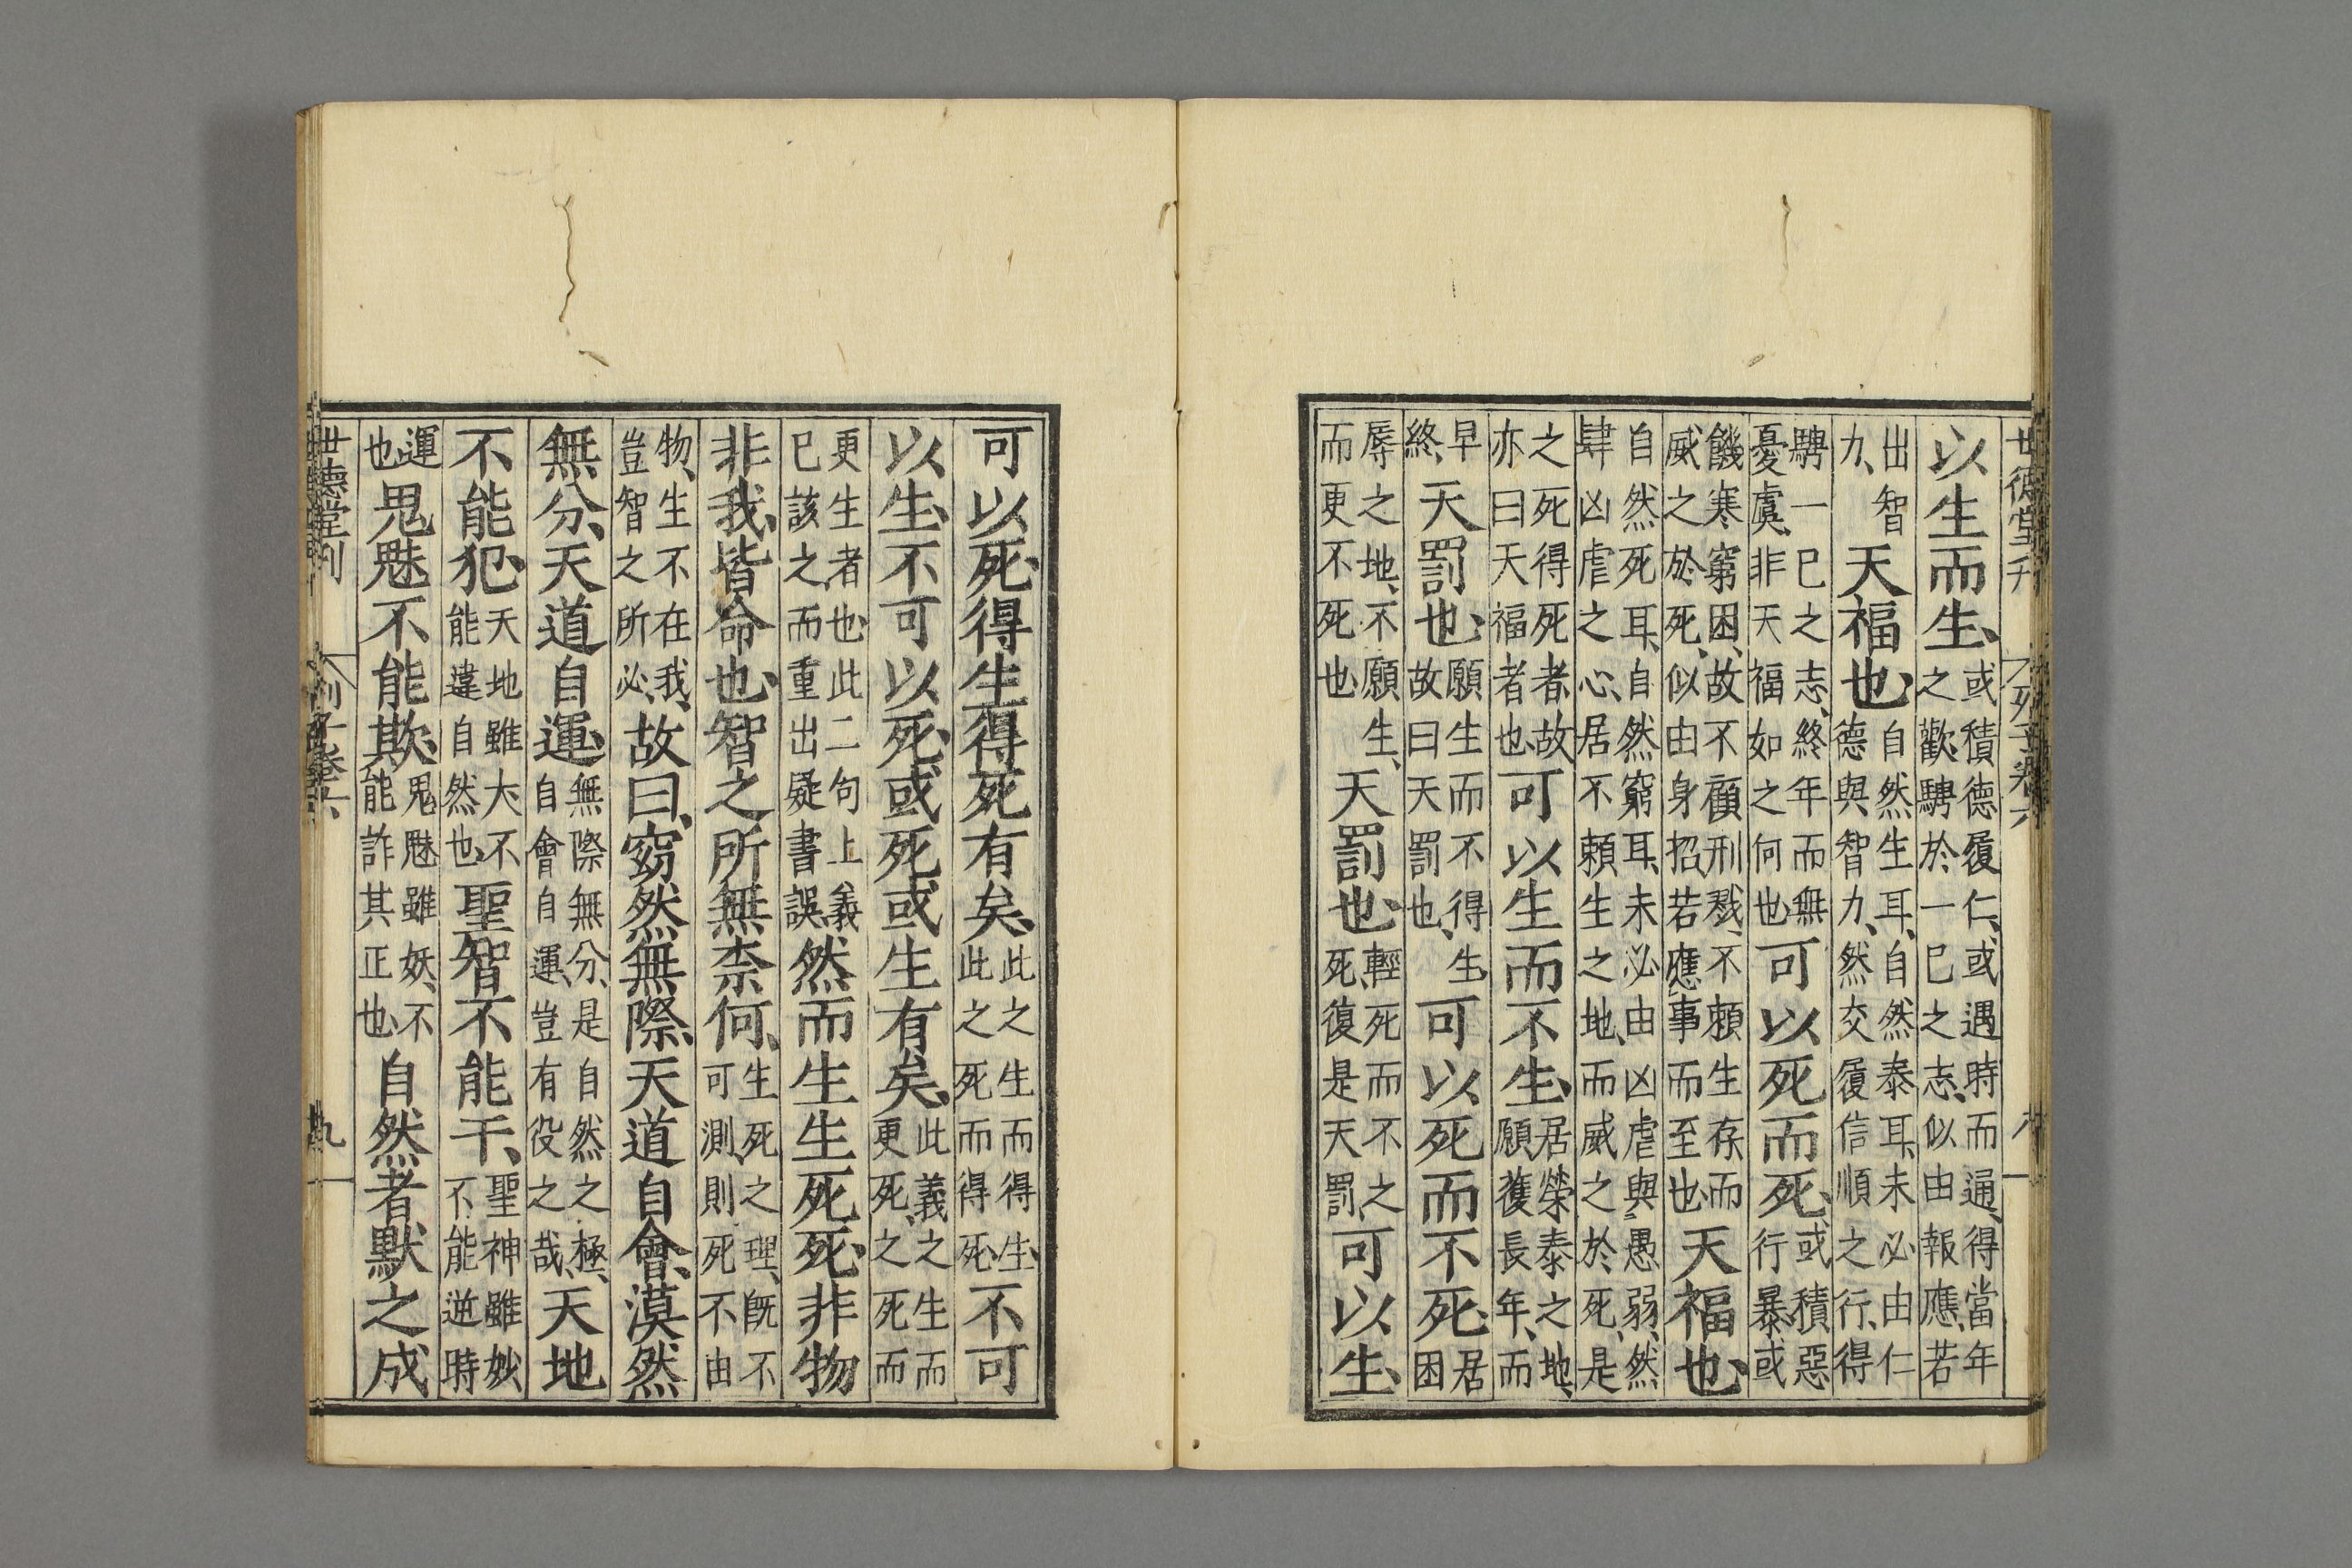 世德堂刊 列子卷六 八
以生而生、
或積德履仁、或遇時而通、得當年
之歡騁於一已之志、似由報應、若
出智
力、
天福也、
自然生耳、自然泰耳、未必由仁
德與智力、然交履信順之行、得
騁一已之志、終年而無
憂虞、非天福如之何也
可以死而死、
或積惡
行暴或
饑寒窮困、故不顧刑戮、不賴生存而
威之於死、似由身招若應事而至也
天福也、
自然死耳、自然窮耳、未必由凶虐與愚弱、然
肆凶虐之心、居不賴生之地、而威之於死、是
之死得死者、故
亦曰天福者也
可以生而不生、
居榮泰之地、
願獲長年、而
早
終、
天罰也、
願生而不得生、
故曰天罰也、
可以死而不死、
居
困
辱之地、不願生、
而更不死也
天罰也、
輕死而不之
死、復是天罰、
可以生、
可以死、得生得死有矣、
此之生而得生、
此之死而得死、
不可
以生、不可以死、或死或生有矣、
此義之生而
更死、之死而
更生者也、此二句上義
已該之、而重出疑書誤、
然而生生死死、非物
非我、皆命也、智之所無柰何、
生死之理、旣不
可測、則死不由
物、生不在我、
豈智之所必、
故曰、窈然無際、天道自會、漠然
無分、天道自運、
無際無分、是自然之極、
自會自運、豈有役之哉、
天地
不能犯、
天地雖大、不
能違自然也、
聖智不能干、
聖神雖妙
不能逆時
運
也
鬼魅不能欺、
鬼魅雖妖、不
能詐其正也、
自然者默之成
世德堂刊 列子卷六 九